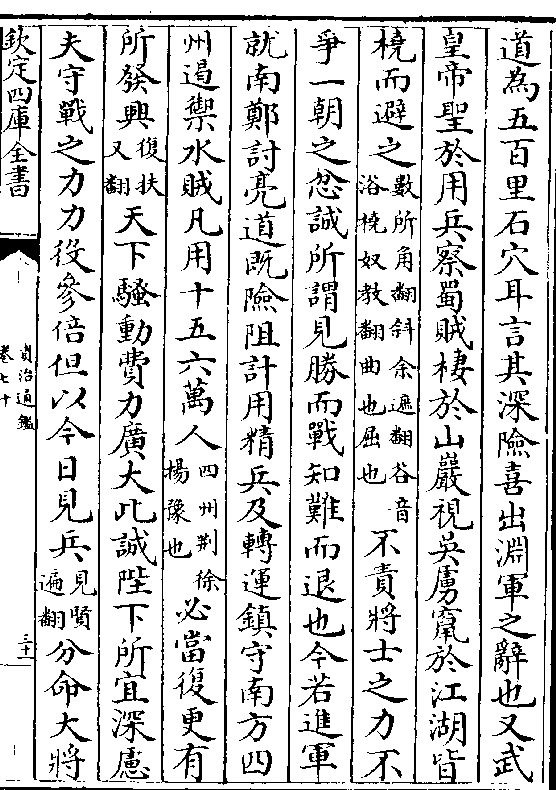 道為五百里石穴耳言其深險喜出淵軍之辭也又武
皇帝聖於用兵察蜀賊棲於山巖視吳虜竄於江湖皆
橈而避之數所角翻斜余遮翻谷音浴橈奴教翻曲也屈也不責將士之力不
爭一朝之忿誠所謂見勝而戰知難而退也今若進軍
就南鄭討亮道既險阻計用精兵及轉運鎮守南方四
州遏禦水賊凡用十五六萬人四州荆徐揚豫也必當復更有
所發興復扶又翻天下騷動費力廣大此誠陛下所宜深慮
夫守戰之力力役參倍但以今日見兵見賢遍翻分命大將
欽定四庫全書
資治通鑑
卷七十
三十